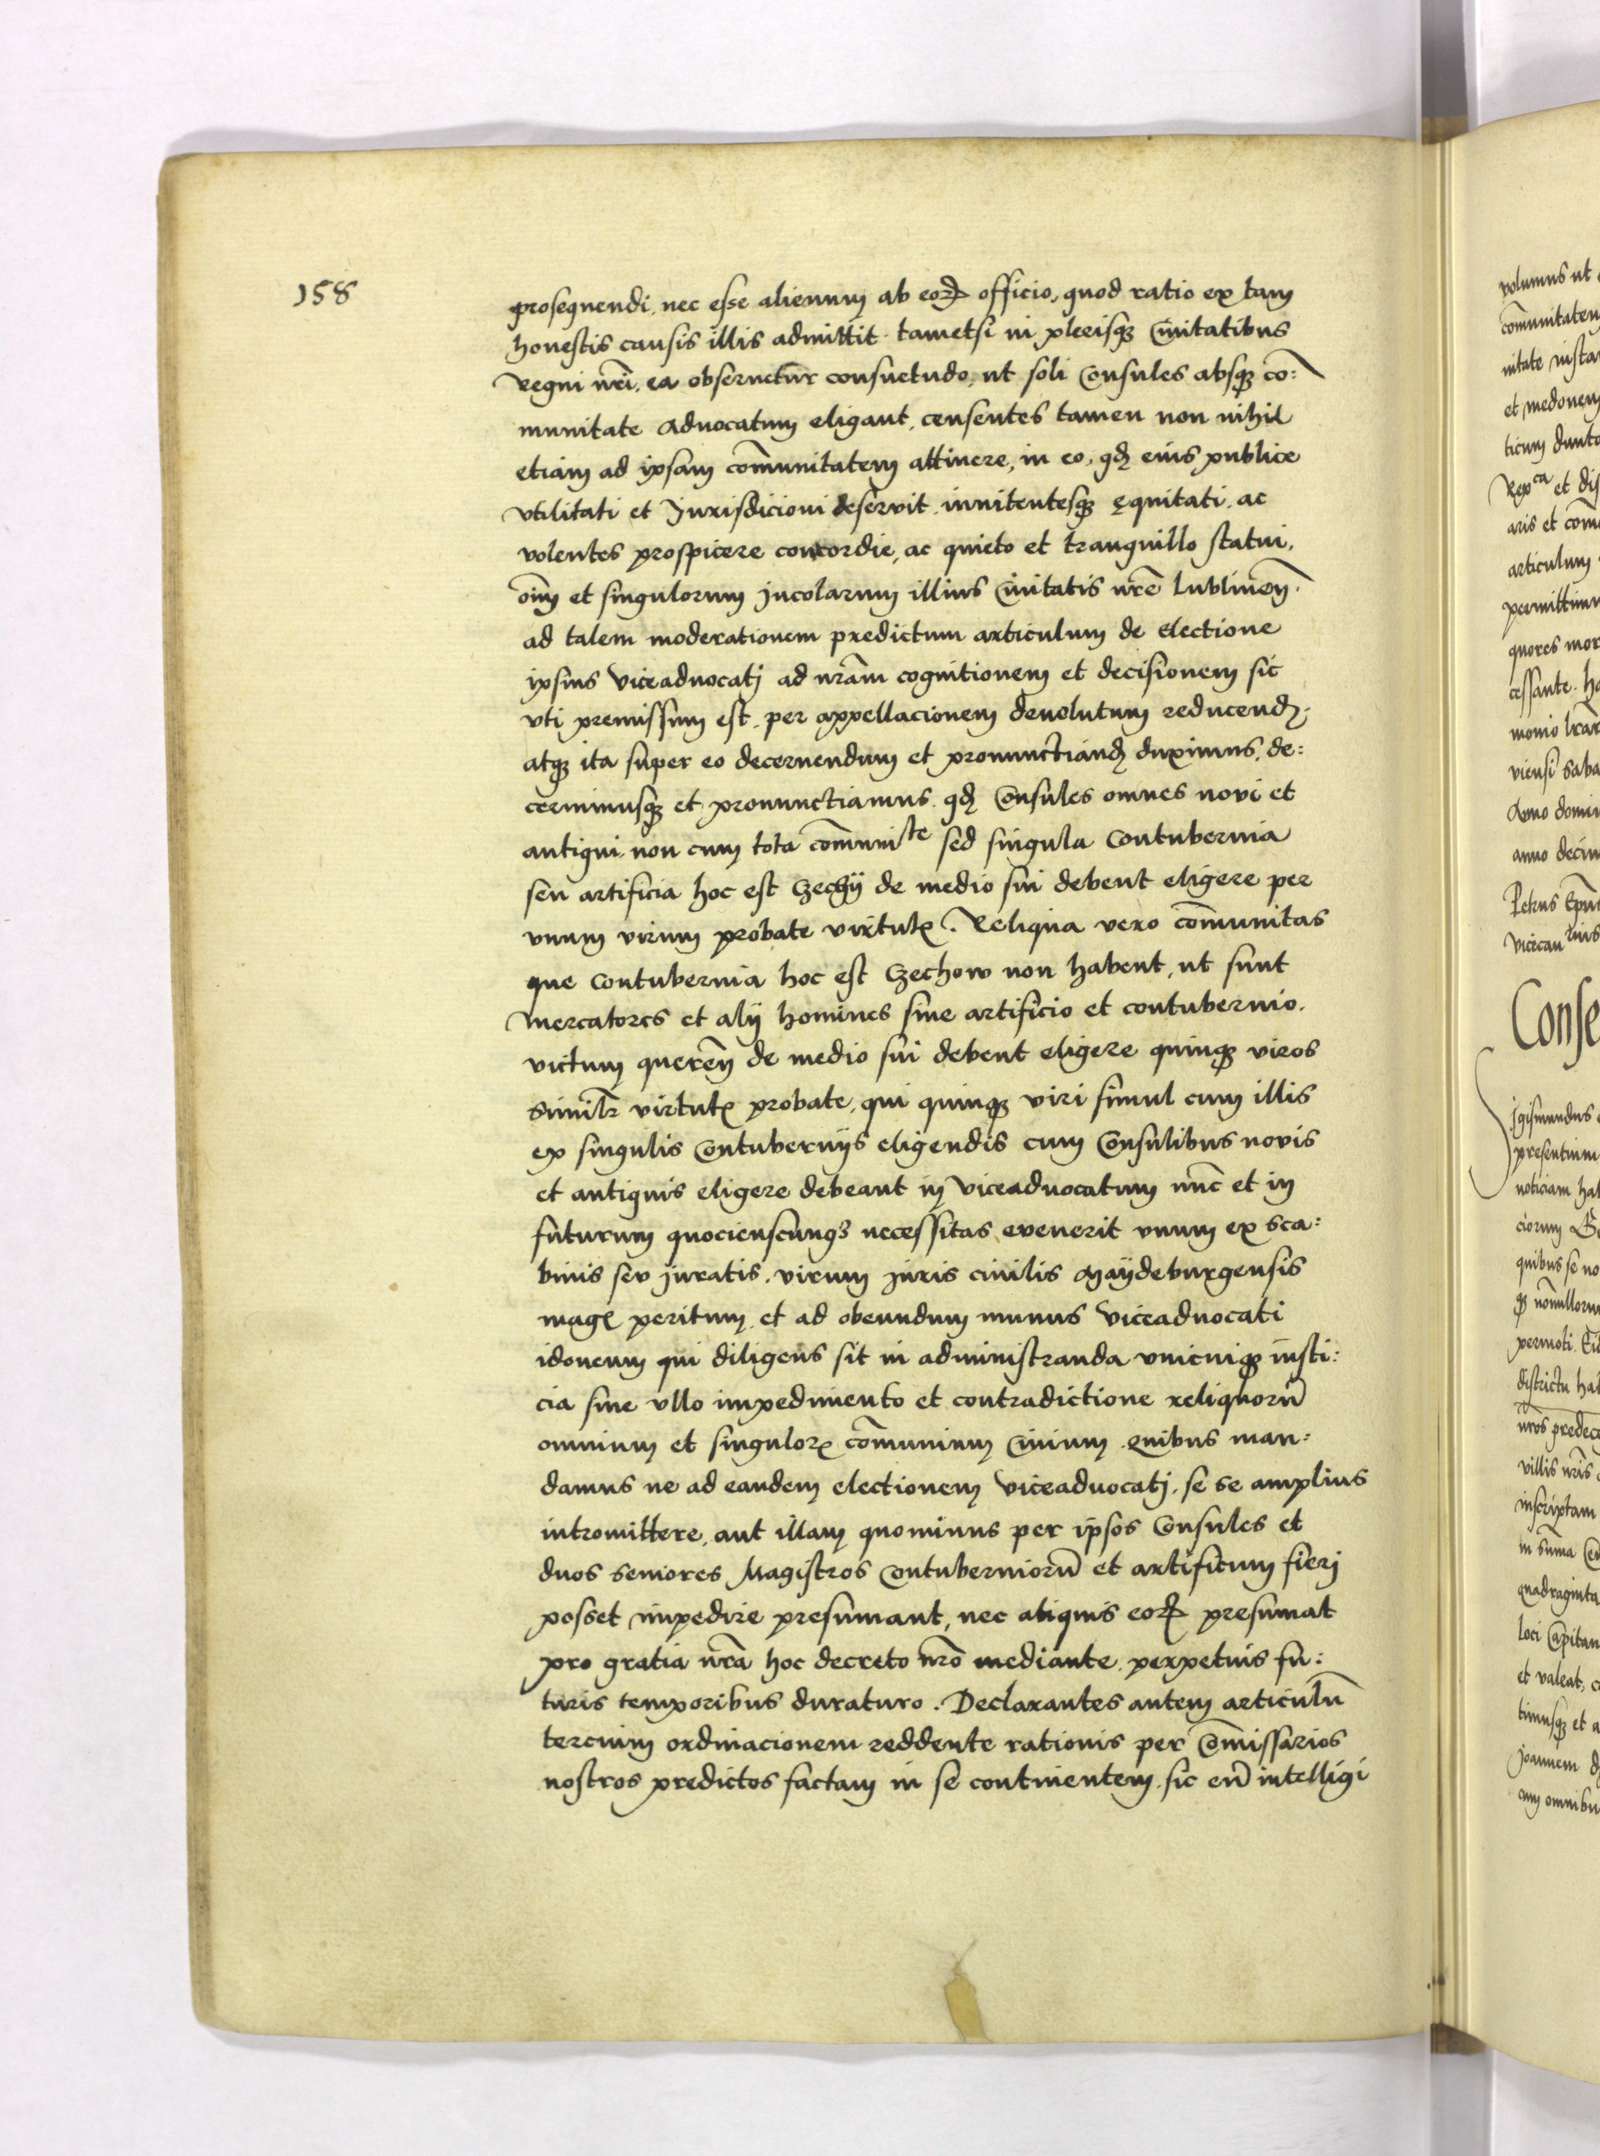 158
prosequendi, nec esse alienum ab eoꝝ officio, quod ratio ex tam
honestis causis illis admittit. tametsi in plerisqꝫ Ciuitatibus
Regni nr̃i, ea obseruetur consuetudo, ut soli Consules absqꝫ co:
munitate Aduocatum eligant, censentes tamen non nihil
etiam ad ipsam com̃unitatem attinere, in eo, qđ eius publice
vtilitati et Jurisdicioni deservit, innitentesqꝫ ęquitati, ac
volentes prospicere concordie, ac quieto et tranquillo statui,
oim̃ et singulorum Incolarum illius Ciuitatis nr̃e Lublineñ.
ad talem moderationem predictum articulum de electione
ipsius Viceaduocatj ad nr̃am cognitionem et decisionem sic
vti premissum est, per appellacionem deuolutum reducenđ.
atqꝫ ita super eo decernendum et pronunctianđ duximus, de:
cernimusqꝫ et pronunctiamus, qđ Consules omnes novi et
antiqui, non cum tota com̃unite sed singula Contubernia
seu artificia hoc est Czechÿ de medio sui debent eligere per
vnum virum probate virtutꝭ. Reliqua vero com̃unitas
que Contubernia hoc est Czechow non habent, ut sunt
mercatores et alij homines sine artificio et contubernio.
victum quereñ de medio sui debent eligere quinqꝫ viros
similr̃ virtutꝭ probate, qui quinqꝫ viri simul cum illis
ex singulis Contubernijs eligendis cum Consulibus novis
et antiquis eligere debeant in Viceaduocatum nũc et in
futurum quocienscunqꝫ necessitas evenerit vnum ex sca:
binis seu juratis, virum juris ciuilis Maÿdeburgensis
magꝭ peritum, et ad obeundum munus Viceaduocati
idoneum qui diligens sit in administranda vnicuiqꝫ iusti:
cia sine vllo impedimento et contradictione reliquorũ
omnium et singuloꝝ com̃unium Ciuium. Quibus man:
damus ne ad eandem electionem Viceaduocatj, se se amplius
intromittere, aut illam quominus per ipsos Consules et
duos seniores Magistros Contuberniorũ et artificum fierj
posset impedire presumant, nec aliquis eoꝝ presumat
pro gratia nr̃a hoc decreto nr̃o mediante, perpetuis fu:
turis temporibus duraturo. Declarantes autem articulũ
tercium ordinacionem reddende rationis per Com̃issarios
nostros predictos factam in se continentem, sic eũ intelligi
volumus ut
com̃unitatem
et medonem
articulum
cessante.
Anno domin
Petrus Ep̃us
Conse
igismundus
noticiam hab
quibus se no
districtu hab
inscriptam
quadraginta
loci Capitan
et valeat,
timusqꝫ et a
Joannem